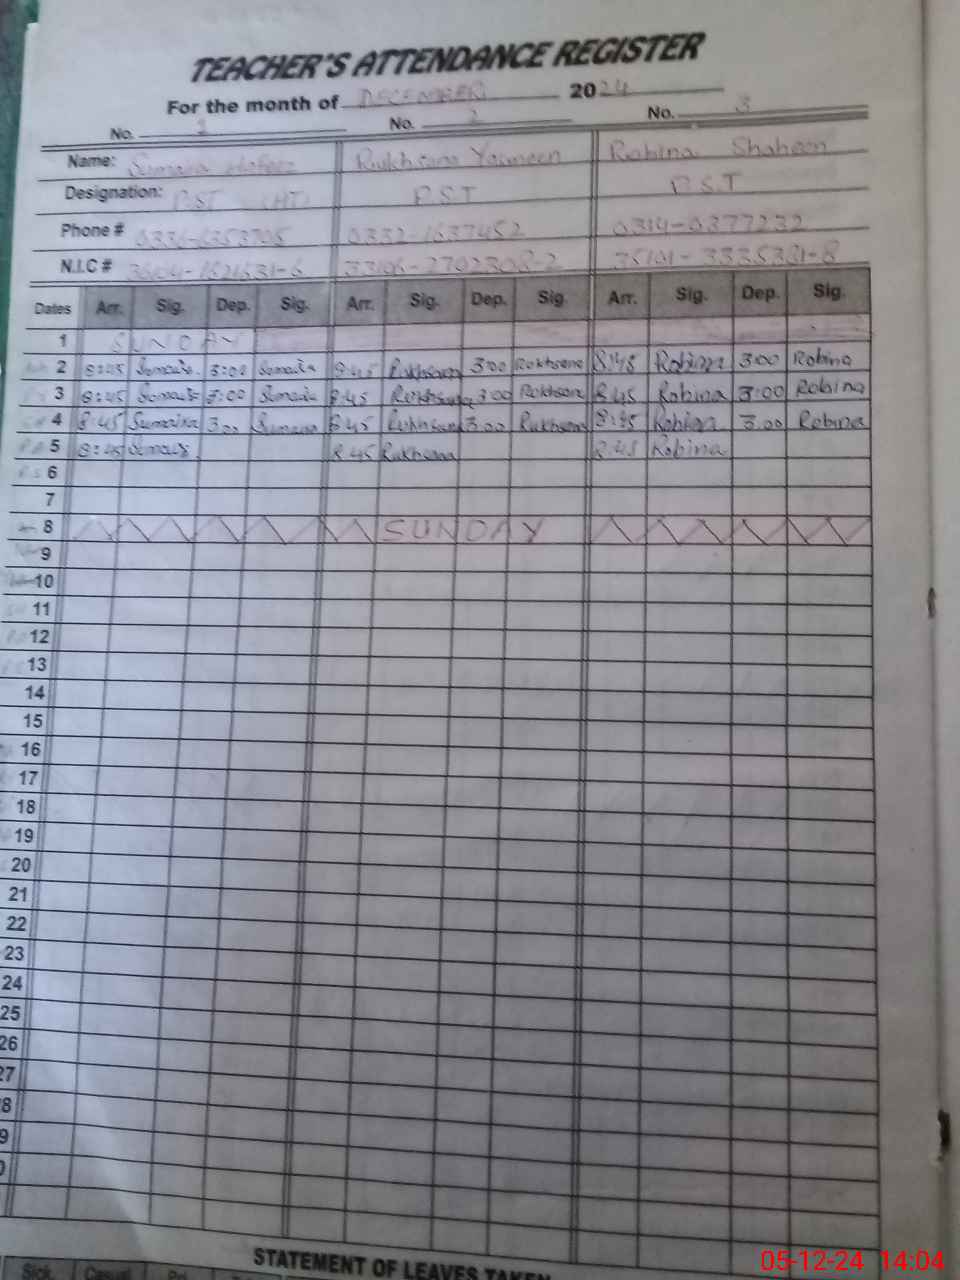 TEACHER'S ATTENDANCE REGISTER
For the month of DECEMBER 2024
No. 1 No. 2 No. 3
Name: Sumaira Hafeez Rukhsana Yasmeen Robina Shaheen
Designation: P.S.T (HT) P.S.T P.S.T
Phone # 0336-6353705 0332-1637452 0314-0377232
N.I.C # 33106-2702308-2
Dates Arr. Sig. Dep. Sig. Arr. Sig. Dep. Sig. Arr. Sig. Dep. Sig.
1 SUNDAY
2 8:45 Sumaira 3:00 Sumaira 8:45 Rukhsana 3:00 Rukhsana 8:45 Robina 3:00 Robina
3 8:45 Sumaira 3:00 Sumaira 8:45 Rukhsana 3:00 Rukhsana 8:45 Robina 3:00 Robina
4 8:45 Sumaira 3:00 Sumaira 8:45 Rukhsana 3.00 Rukhsana 8:45 Robina 3.00 Robina
5 8:45 Sumaira 8.45 Rukhsana 8.45 Robina
6
7
8 SUNDAY
9
10
11
12
13
14
15
16
17
18
19
20
21
22
23
24
25
26
27
8
9
STATEMENT OF LEAVES TAKEN
Sick Casual
05-12-24 14:04